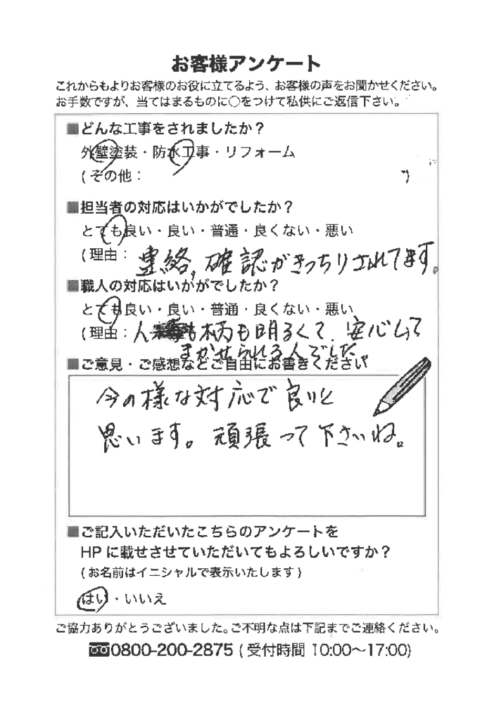 お客様アンケート
これからもよりお客様のお役に立てるよう、お客様の声をお聞かせください。
お手数ですが、当てはまるものに○をつけて私供にご返信下さい。
■どんな工事をされましたか？
外壁塗装・防水工事・リフォーム
(その他： )
■担当者の対応はいかがでしたか？
とても良い・良い・普通・良くない・悪い
(理由： 連絡，確認がきっちりされてます。
■職人の対応はいかがでしたか？
とても良い・良い・普通・良くない・悪い
(理由： 人も柄も明るくて、安心して
まかせられる人でした。
■ご意見・ご感想などご自由にお書きください
今の様な対応で良いと
思います。頑張って下さいね。
■ご記入いただいたこちらのアンケートを
HPに載せさせていただいてもよろしいですか？
(お名前はイニシャルで表示いたします)
はい・いいえ
ご協力ありがとうございました。ご不明な点は下記までご連絡ください。
0800-200-2875 (受付時間 10:00～17:00)